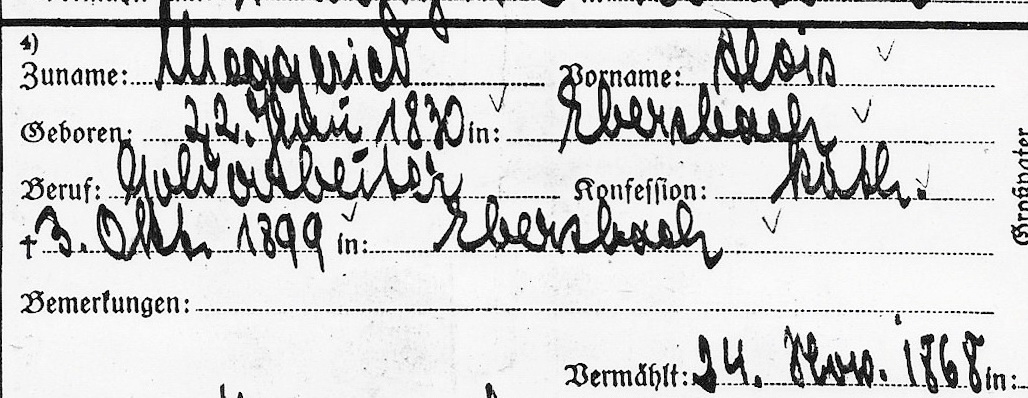 4)
Zuname: Vorname: Alois
Geboren: 22. 1830 in: Ebersbach
Beruf: Goldarbeiter Konfession: kath.
† 3. Okt. 1899 in: Ebersbach
Großvater
Bemerkungen:
Vermählt: 24. Nov. 1868 in: